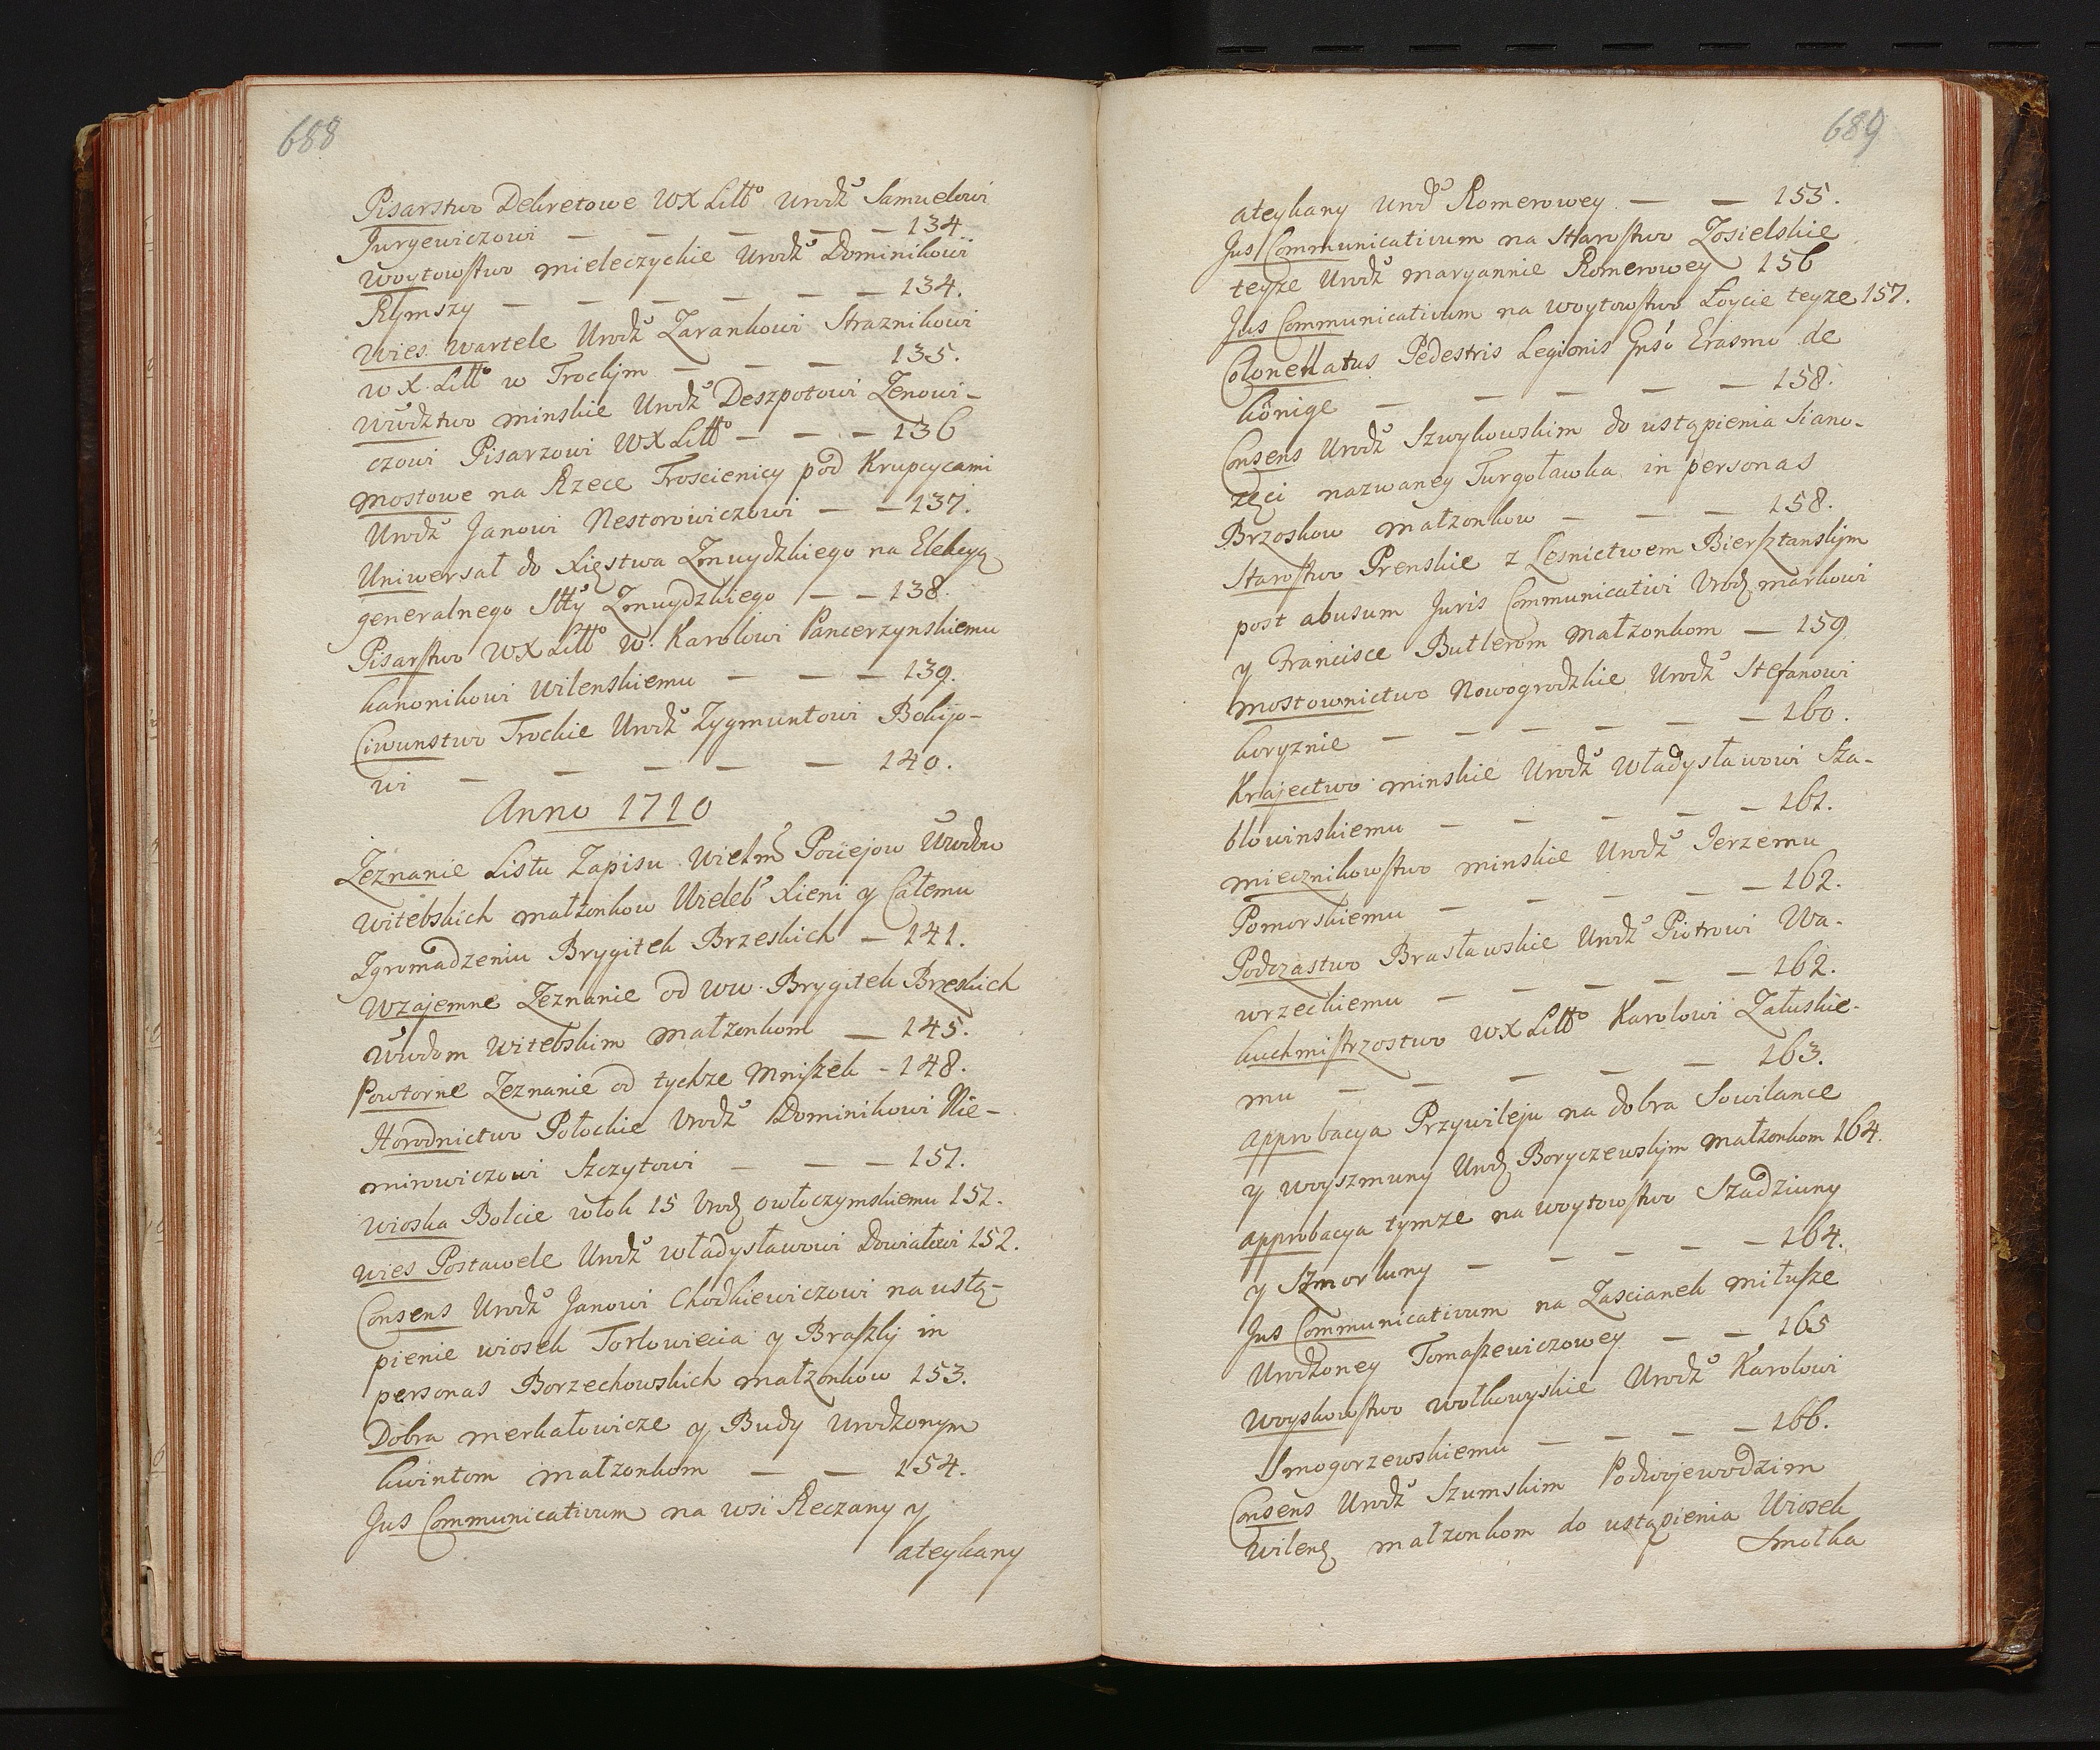 688
Pisarstwo Dekretowe WX Litto Urodzo Samuelowi
Juryewiczowi — — — — — 134.
Woytowstwo mieleczyckie Urodzo Dominikowi
Rymszy — — — — — — 134.
Wies Wartele Urodzo Zarankowi Straznikowi
W X. Litto w Trockim — — — 135.
Wwodztwo minskie Urodzo Deszpotowi Zenowi-
czowi Pisarzowi WX Litto — — — 136
Mostowe na Rzece Troscienicy pod Krupcycami
Urodzo Janowi Nestorowiczowi — — 137.
Uniwersał do Xięstwa Zmuydzkiego na Elekcyą
generalnego Stty Zmuydzkiego — — 138.
Pisarstwo WX Litto W. Karolowi Pancerzynskiemu
kanonikowi Wilenskiemu — — — 139.
Ciwunstwo Trockie Urodzo Zygmuntowi Bokijo-
wi — — — — — 140.
Anno 1710
Zeznanie Listu Zapisu Wielm Pociejow Wwodow
Witebskich małzonkow Wieleb Xieni y Całemu
Zgromadzeniu Brygitek Brzeskich — 141.
Wzajemne Zeznanie od WW. Brygitek Brzeskich
Wwodom Witebskim małzonkom — 145.
Powtorne Zeznanie od tychze Mniszek - 148.
Horodnictwo Połockie Urodzo Dominikowi Nie-
mirowiczowi Szczytowi — — — 151.
Wioska Bolcie włok 15 Urodz Owłoczymskiemu 151.
Wies Postawele Urodzo Władysławowi Dowiatowi 152.
Consens Urodzo Janowi Chodkiewiczowi na ustą-
pienie wiosek Torlowiecia y Braszly in
personas Borzechowskich małzonkow 153.
Dobra Merkałowicze y Budy Urodzonym
kwintom małzonkom — — 154.
Jus Communicativum na wsi Reczany y
ateykany
689
ateykany Urod Romerowey — — 155.
Jus Communicativum na Starostwo Zosielskie
teyze Urodzo Maryannie Romerowey 156
Jus Communicativum na woytowstwo Łoycie teyze 157.
Colonellatus Pedestris Legionis Gnso Erasmo de
könige — — — — — 158.
Consens Urodzo Szwykowskim do ustąpienia Siano-
zęci nazwaney Turgoławka in personas
Brzoskow małzonkow — — — 158.
Starostwo Prenskie z Lesnictwem Biersztanskim
post abusum Juris Communicativi Urodz Markowi
y Francisce Butlerom Małzonkom — 159
Mostownictwo Nowogrodzkie Urodzo Stefanowi
koryznie — — — — — — 160.
Krajectwo minskie Urodzo Władysławowi Sza-
blowinskiemu — — — — — 161.
Miecznikowstwo minskie Urodzo Jerzemu
Pomorskiemu — — — — — 162.
Podczastwo Brasławskie Urodzo Piotrowi Wa-
wrzeckiemu — — — — — 162.
kuchmistrzostwo WX Litto Karolowi Załuskie-
mu — — — — — 163.
approbacya Przywileju na dobra Sowilance
y woyszmuny Urodz Boryczewskim Małzonkom 164.
approbacya tymze na woytowstwo Szadziuny
y Szmorluny — — — — — 164.
Jus Communicativum na Zascianek miłusze
Urodzoney Tomaszewiczowey — — 165
Woyskowstwo wołkowyskie Urodzo Karolowi
Smogorzewskiemu — — — — 166.
Consens Urodzo Szumskim Podwojewodzim
Wilenz małzonkom do ustąpienia Wiosek
Smołka